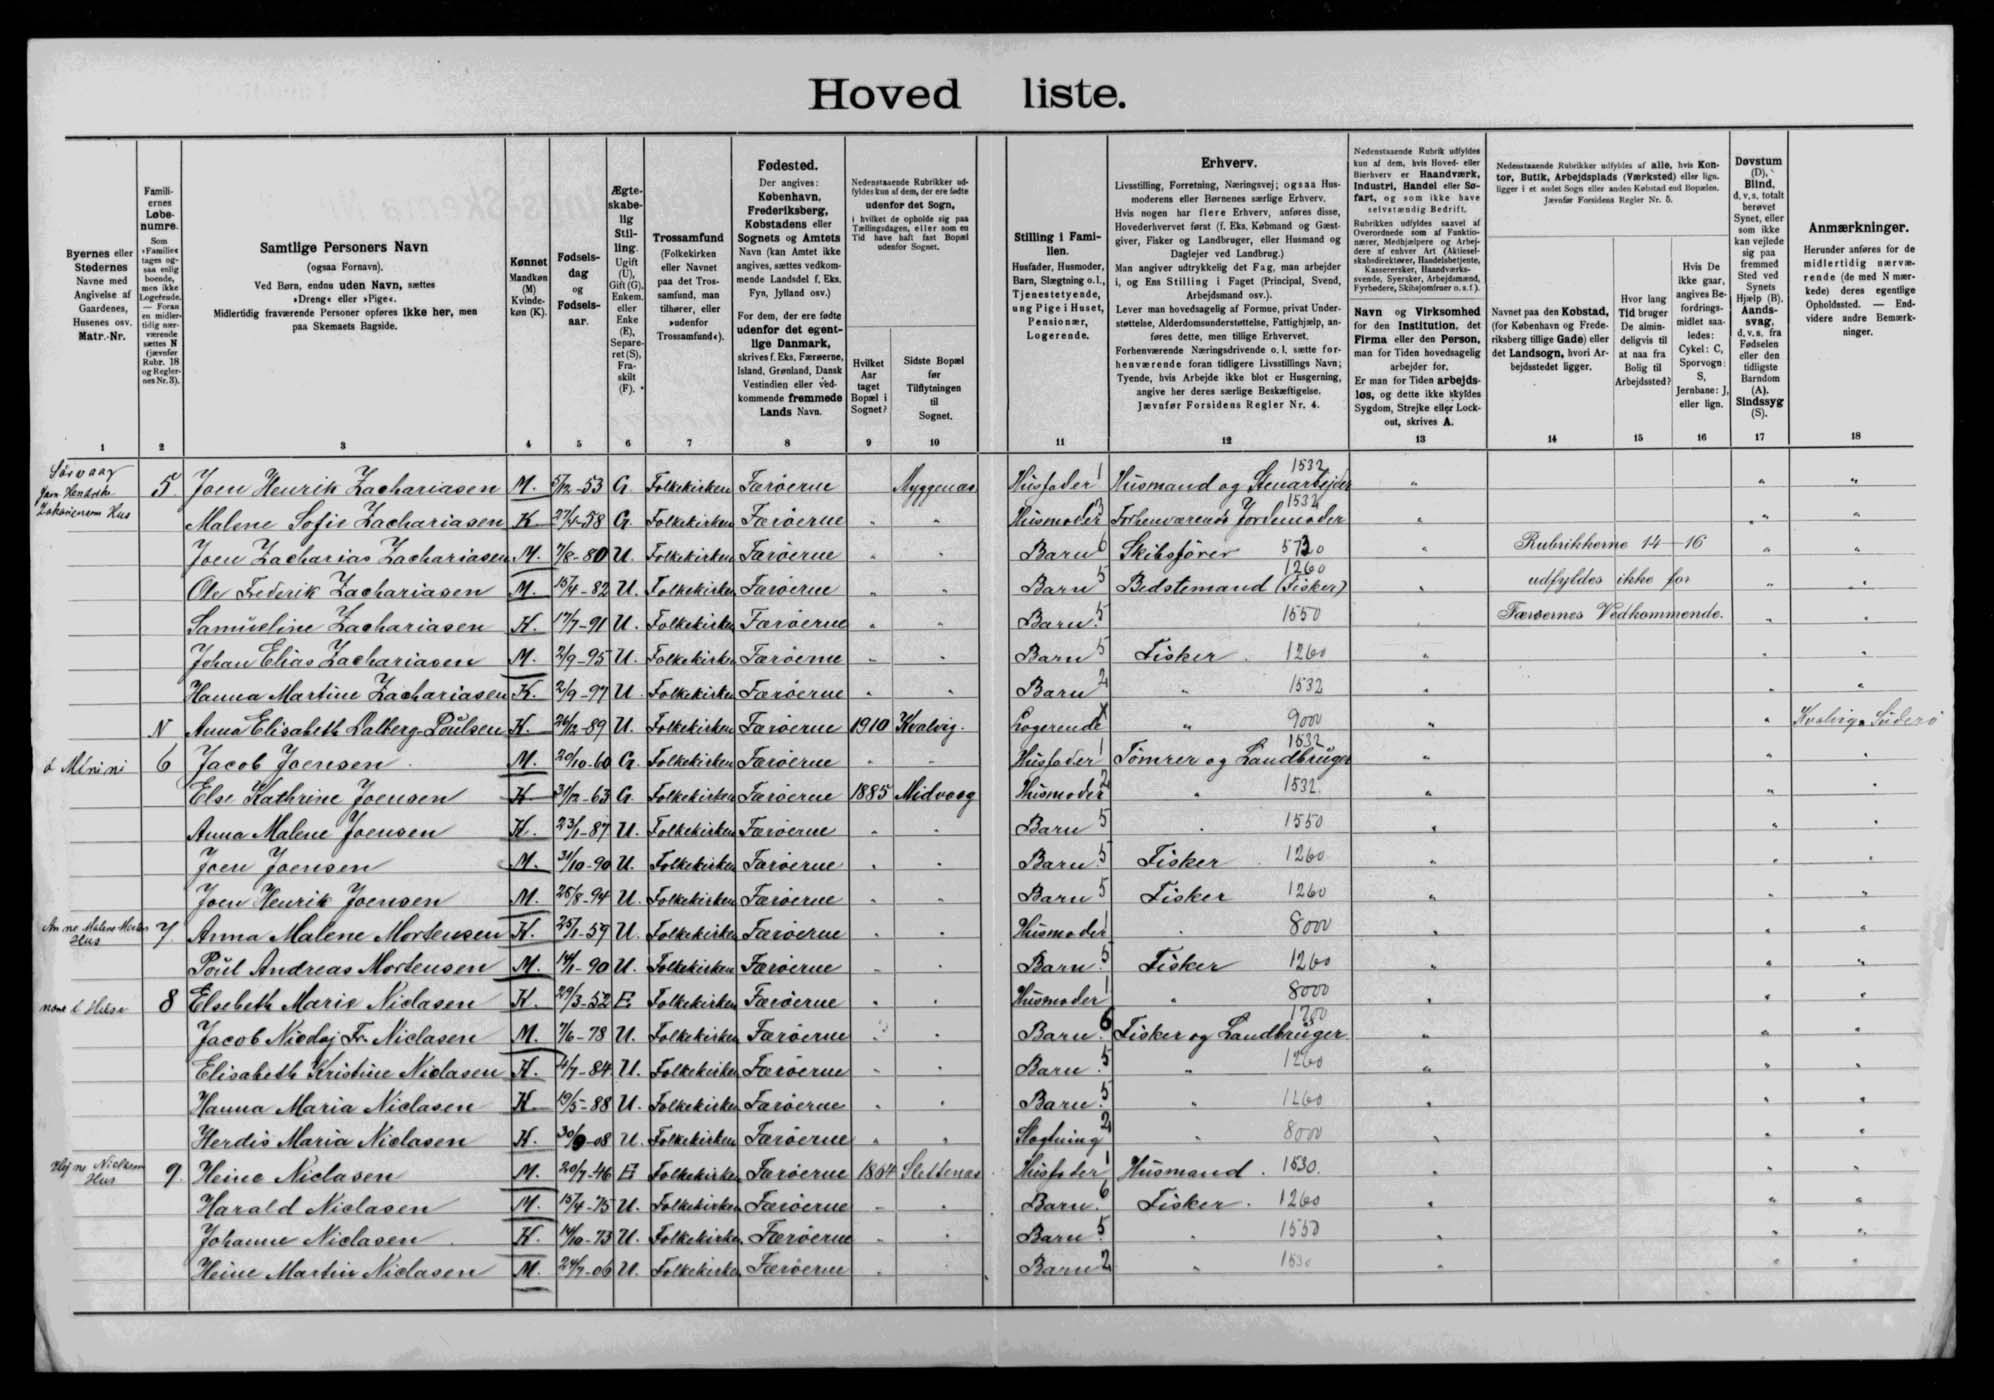 Hoved liste.
Byernes eller Stedernes Navne med Angivelse af Gaardenes, Husenes osv. Matr.-Nr.
Familiernes Løbenumre. Som »Familie« tages ogsaa enlig boende, men ikke Logerende. — Foran en midlertidig nærværende sættes N (jævnfør Rubr. 18 og Regler- nes Nr. 3).
Samtlige Personers Navn
(ogsaa Fornavn).
Ved Børn, endnu uden Navn, sættes
»Dreng« eller »Pige«.
Midlertidig fraværende Personer opføres ikke her, men
paa Skemaets Bagside.
Kønnet Mandkøn (M) Kvindekøn (K).
Fødselsdag og Fødselsaar.
Ægteskabelig Stilling. Ugift (U), Gift (G), Enkem. eller Enke (E), Separeret (S), Fraskilt (F).
Trossamfund (Folkekirken eller Navnet paa det Trossamfund, man tilhører, eller »udenfor Trossamfund«).
Fødested.
Der angives: København, Frederiksberg, Købstadens eller Sognets og Amtets Navn (kan Amtet ikke angives, sættes vedkommende Landsdel f. Eks. Fyn, Jylland osv.)
For dem, der ere fødte udenfor det egentlige Danmark, skrives f. Eks. Færøerne, Island, Grønland, Dansk Vestindien eller vedkommende fremmede Lands Navn.
Nedenstaaende Rubrikker udfyldes kun af dem, der ere fødte udenfor det Sogn, i hvilket de opholde sig paa Tællingsdagen, eller som en Tid have haft fast Bopæl udenfor Sognet.
Hvilket Aar taget Bopæl i Sognet?
Sidste Bopæl før Tilflytningen til Sognet.
Stilling i Familien.
Husfader, Husmoder, Barn, Slægtning o.l., Tjenestetyende, ung Pige i Huset, Pensionær, Logerende.
Erhverv.
Livsstilling, Forretning, Næringsvej; ogsaa Husmoderens eller Børnenes særlige Erhverv.
Hvis nogen har flere Erhverv, anføres disse, Hovederhvervet først (f. Eks. Købmand og Gæstgiver, Fisker og Landbruger, eller Husmand og Daglejer ved Landbrug.)
Man angiver udtrykkelig det Fag, man arbejder i, og Ens Stilling i Faget (Principal, Svend, Arbejdsmand osv.).
Lever man hovedsagelig af Formue, privat Understøttelse, Alderdomsunderstøttelse, Fattighjælp, anføres dette, men tillige Erhvervet.
Forhenværende Næringsdrivende o. l. sætte forhenværende foran tidligere Livsstillings Navn; Tyende, hvis Arbejde ikke blot er Husgerning, angive her deres særlige Beskæftigelse.
Jævnfør Forsidens Regler Nr. 4.
Nedenstaaende Rubrik udfyldes kun af dem, hvis Hoved- eller Bierhverv er Haandværk, Industri, Handel eller Søfart, og som ikke have selvstændig Bedrift.
Rubrikken udfyldes saavel af Overordnede som af Funktionærer, Medhjælpere og Arbejdere af enhver Art (Aktieselskabsdirektører, Handelsbetjente, Kassererskser, Haandværkssvende, Syersker, Arbejdsmænd, Fyrbødere, Skibsjomfruer o. s. f.).
Navn og Virksomhed for den Institution, det Firma eller den Person, man for Tiden hovedsagelig arbejder for.
Er man for Tiden arbejdsløs, og dette ikke skyldes Sygdom, Strejke eller Lockout, skrives A.
Nedenstaaende Rubrikker udfyldes af alle, hvis Kontor, Butik, Arbejdsplads (Værksted) eller lign. ligger i et andet Sogn eller anden Købstad end Bopælen.
Jævnfør Forsidens Regler Nr. 5.
Navnet paa den Købstad, (for København og Frederiksberg tillige Gade) eller det Landsogn, hvori Arbejdsstedet ligger.
Hvor lang Tid bruger De almindeligvis til at naa fra Bolig til Arbejdssted?
Hvis De ikke gaar, angives Befordringsmidlet saaledes: Cykel: C, Sporvogn: S, Jernbane: J, eller lign.
Døvstum (D), Blind, d. v. s. totalt berøvet Synet, eller som ikke kan vejlede sig paa fremmed Sted ved Synets Hjælp (B). Aandssvag, d. v. s. fra Fødselen eller den tidligste Barndom (A). Sindssyg (S).
Anmærkninger.
Herunder anføres for de midlertidig nærværende (de med N mærkede) deres egentlige Opholdssted. — Endvidere andre Bemærkninger.
1 2 3 4 5 6 7 8 9 10 11 12 13 14 15 16 17 18
Sørvaag
Joen Hendrik Zakariasens Hus 5. Joen Henrik Zachariasen M. 5/12-53 G. Folkekirken Færöerne Myggenæs Husfader 1 Husmand og Stenarbejder 1532 " " "
Malene Sofie Zachariasen K 27/4-58 G. Folkekirken Færöerne " " Husmoder 3 Forhenværende Jordemoder 1532 " " "
Joen Zacharias Zachariasen M. 7/8-80 U. Folkekirken Færöerne " " Barn 6 Skibsfører 5720 " Rubrikkerne 14-16 " "
Ole Frederik Zachariasen M. 15/4-82 U. Folkekirken Færöerne " " Barn 5 Bedstemand (Fisker) 1260 " udfyldes ikke for " "
Samueline Zachariasen K. 17/7-91 U. Folkekirken Færöerne " " Barn 5 1550 Færøernes Vedkommende. " "
Johan Elias Zachariasen M. 2/9-95 U. Folkekirken Færöerne " " Barn 5 Fisker. 1260 " " "
Hanna Martine Zachariasen K. 2/9-97 U. Folkekirken Færöerne " " Barn 2 " 1532 " " "
N Anna Elisabeth Dalberg-Poulsen K. 26/12-89 U. Folkekirken Færöerne 1910 Kvalvig. Logerende x " 9000 " " Kvalvig Süderö
6 Jacob Joensen M. 20/10-60 G. Folkekirken Færöerne " " Husfader 1 Tömrer og Landbruger 1532 " " "
Else Kathrine Joensen K 31/12-63 G. Folkekirken Færöerne 1885 Midvaag Husmoder 2 " 1532 " " "
Anna Malene Joensen K. 23/1-87 U. Folkekirken Færöerne " " Barn 5 " 1550 " " "
Joen Joensen M. 31/10-90 U. Folkekirken Færöerne " " Barn 5 Fisker 1260 " " "
Joen Henrik Joensen M. 25/8-94 U. Folkekirken Færöerne " " Barn 5 Fisker 1260 " " "
Hus 7. Anna Malene Mortensen K. 25/1-59 U. Folkekirken Færöerne " " Husmoder 1 " 8000 " " "
Poul Andreas Mortensen M. 14/1-90 U. Folkekirken Færöerne " " Barn 5 Fisker 1260 " "
8 Elsebeth Marie Niclasen K. 29/3-52 E Folkekirken Færöerne " " Husmoder 1 " 8000 " " "
Jacob Nicolaj Fr. Niclasen M. 7/6-78 U. Folkekirken Færöerne " " Barn 6 Fisker og Landbruger. 1200 " " "
Elisabeth Kristine Niclasen K. 11/7-84 U. Folkekirken Færöerne " " Barn 5 " 1260 " " "
Hanna Maria Niclasen K 19/5-88 U. Folkekirken Færöerne " " Barn 5 " 1260 " " "
Herdis Maria Niclasen K. 30/9-08 U. Folkekirken Færöerne " " Slægtning 2 " 8000 " " "
Hus 9. Heine Niclasen M. 20/7-46 E Folkekirken Færöerne 1864 Slettenæs Husfader 1 Husmand. 1530. " " "
Harald Niclasen M. 15/4-75 U. Folkekirken Færöerne " " Barn 6 Fisker. 1260 " " "
Johanne Niclasen K. 14/10-73 U. Folkekirken Færöerne " " Barn 5 " 1550 " " "
Heine Martin Niclasen M. 24/7-06 U. Folkekirken Færöerne " " Barn 2 " 1530 " " "